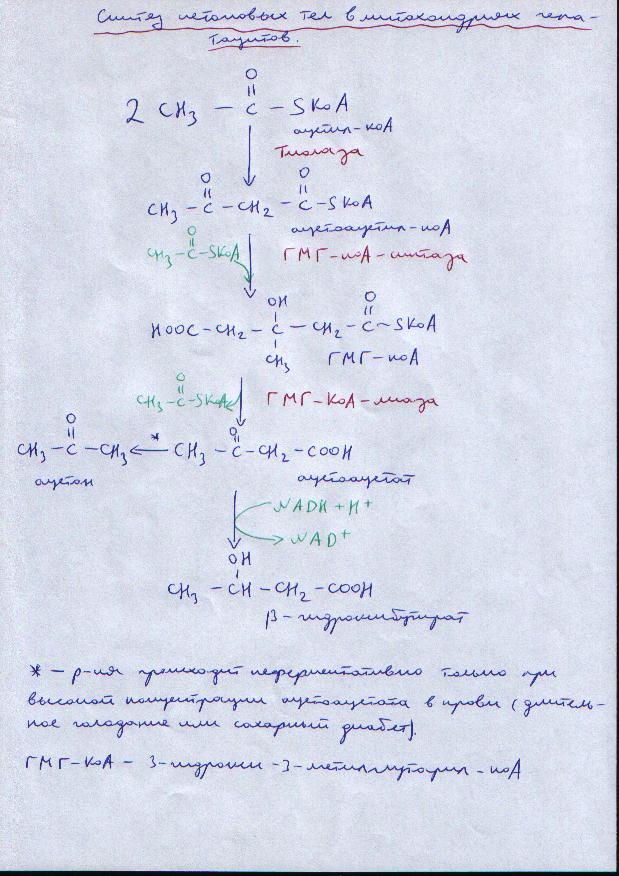 Синтез кетоновых тел в митохондриях гепа-
тоцитов.
O
2 CH3 – C – SKoA
ацетил-коА
Тиолаза
O O
CH3 – C – CH2 – C – SKoA
ацетоацетил-коА
O
CH3 – C – SKoA ГМГ-коА-синтаза
OH O
HOOC – CH2 – C – CH2 – C ~ SKoA
CH3 ГМГ-коА
O
CH3 – C – SKoA ГМГ-КоА-лиаза
O O
CH3 – C – CH3 ← * CH3 – C – CH2 – COOH
ацетон ацетоацетат
NADH + H+
NAD+
OH
CH3 – CH – CH2 – COOH
β – гидроксибутират
* – р-ия происходит неферментативно только при
высокой концетрации ацетоацетата в крови (длитель-
ное голодание или сахарный диабет).
ГМГ-КоА – 3-гидрокси-3-метилглутарил-коА